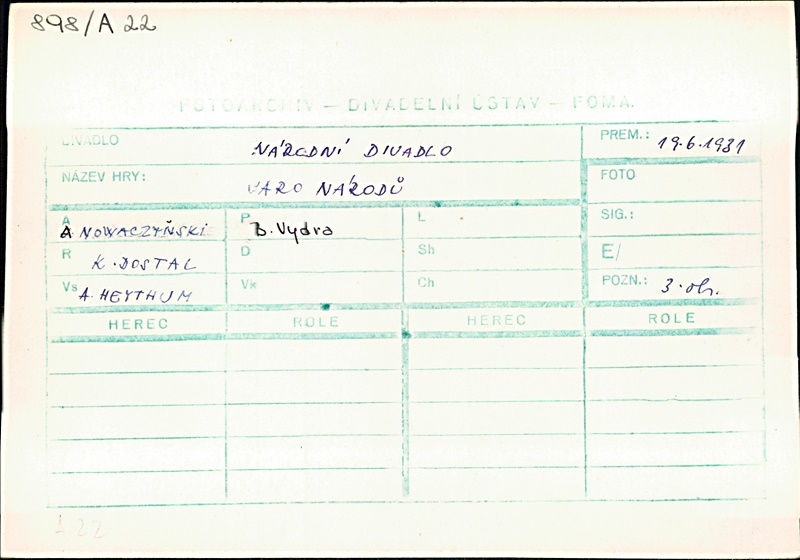 898/A 22
FOTOARCHIV — DIVADELNÍ ÚSTAV — FOMA.
DIVADLO NÁRODNÍ DIVADLO PREM.: 19.6.1931
NÁZEV HRY: JARO NÁRODŮ FOTO
A A. NOWACZYŃSKI P B. Vydra L SIG.:
R K. DOSTAL D Sh E/
Vs A. HEYTHUM Vk Ch POZN.: 3. obr.
HEREC ROLE HEREC ROLE
A 22